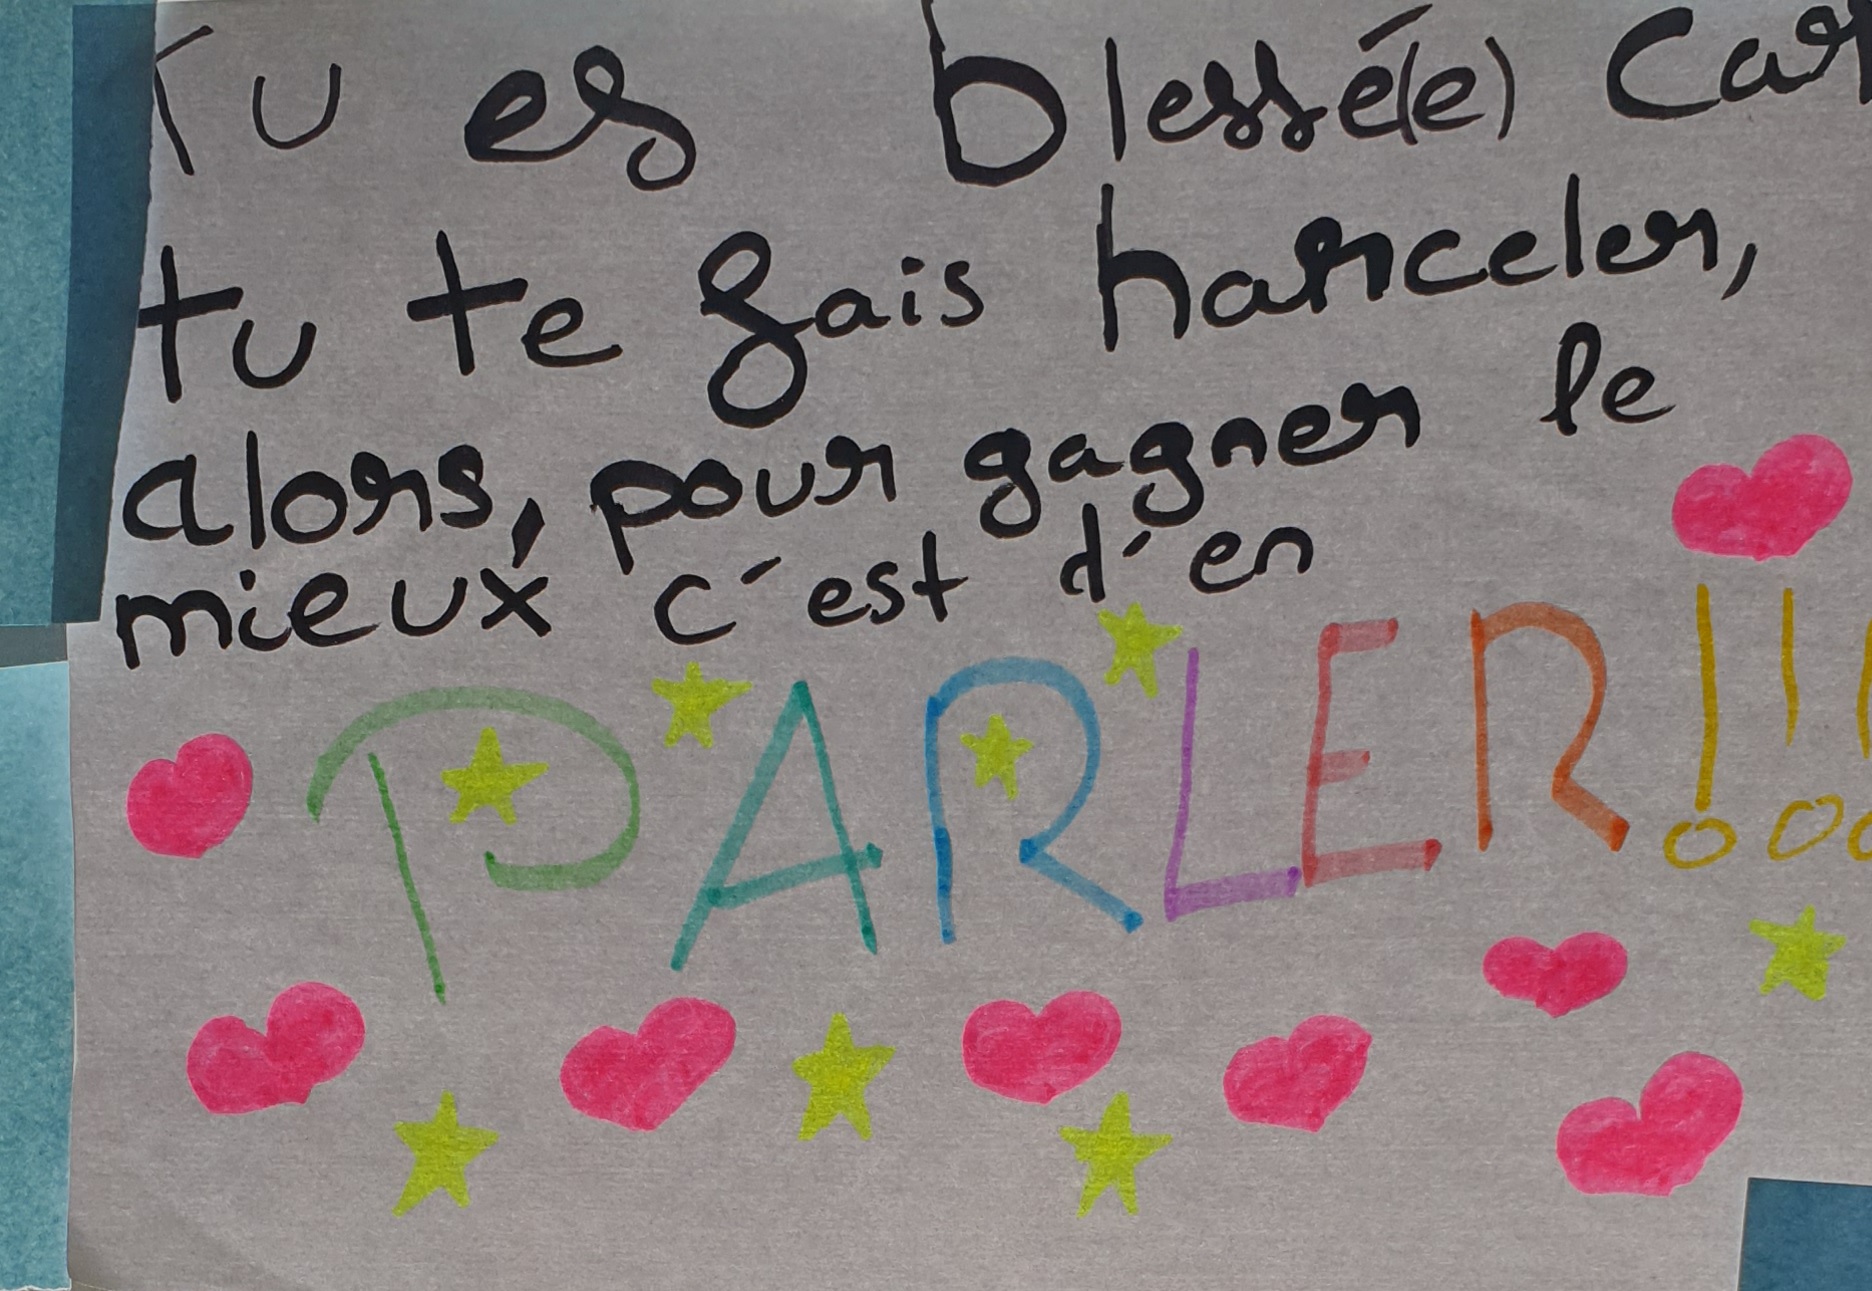 Tu es blessé(e) car
tu te fais harceler,
alors, pour gagner le
mieux c'est d'en
PARLER!!!